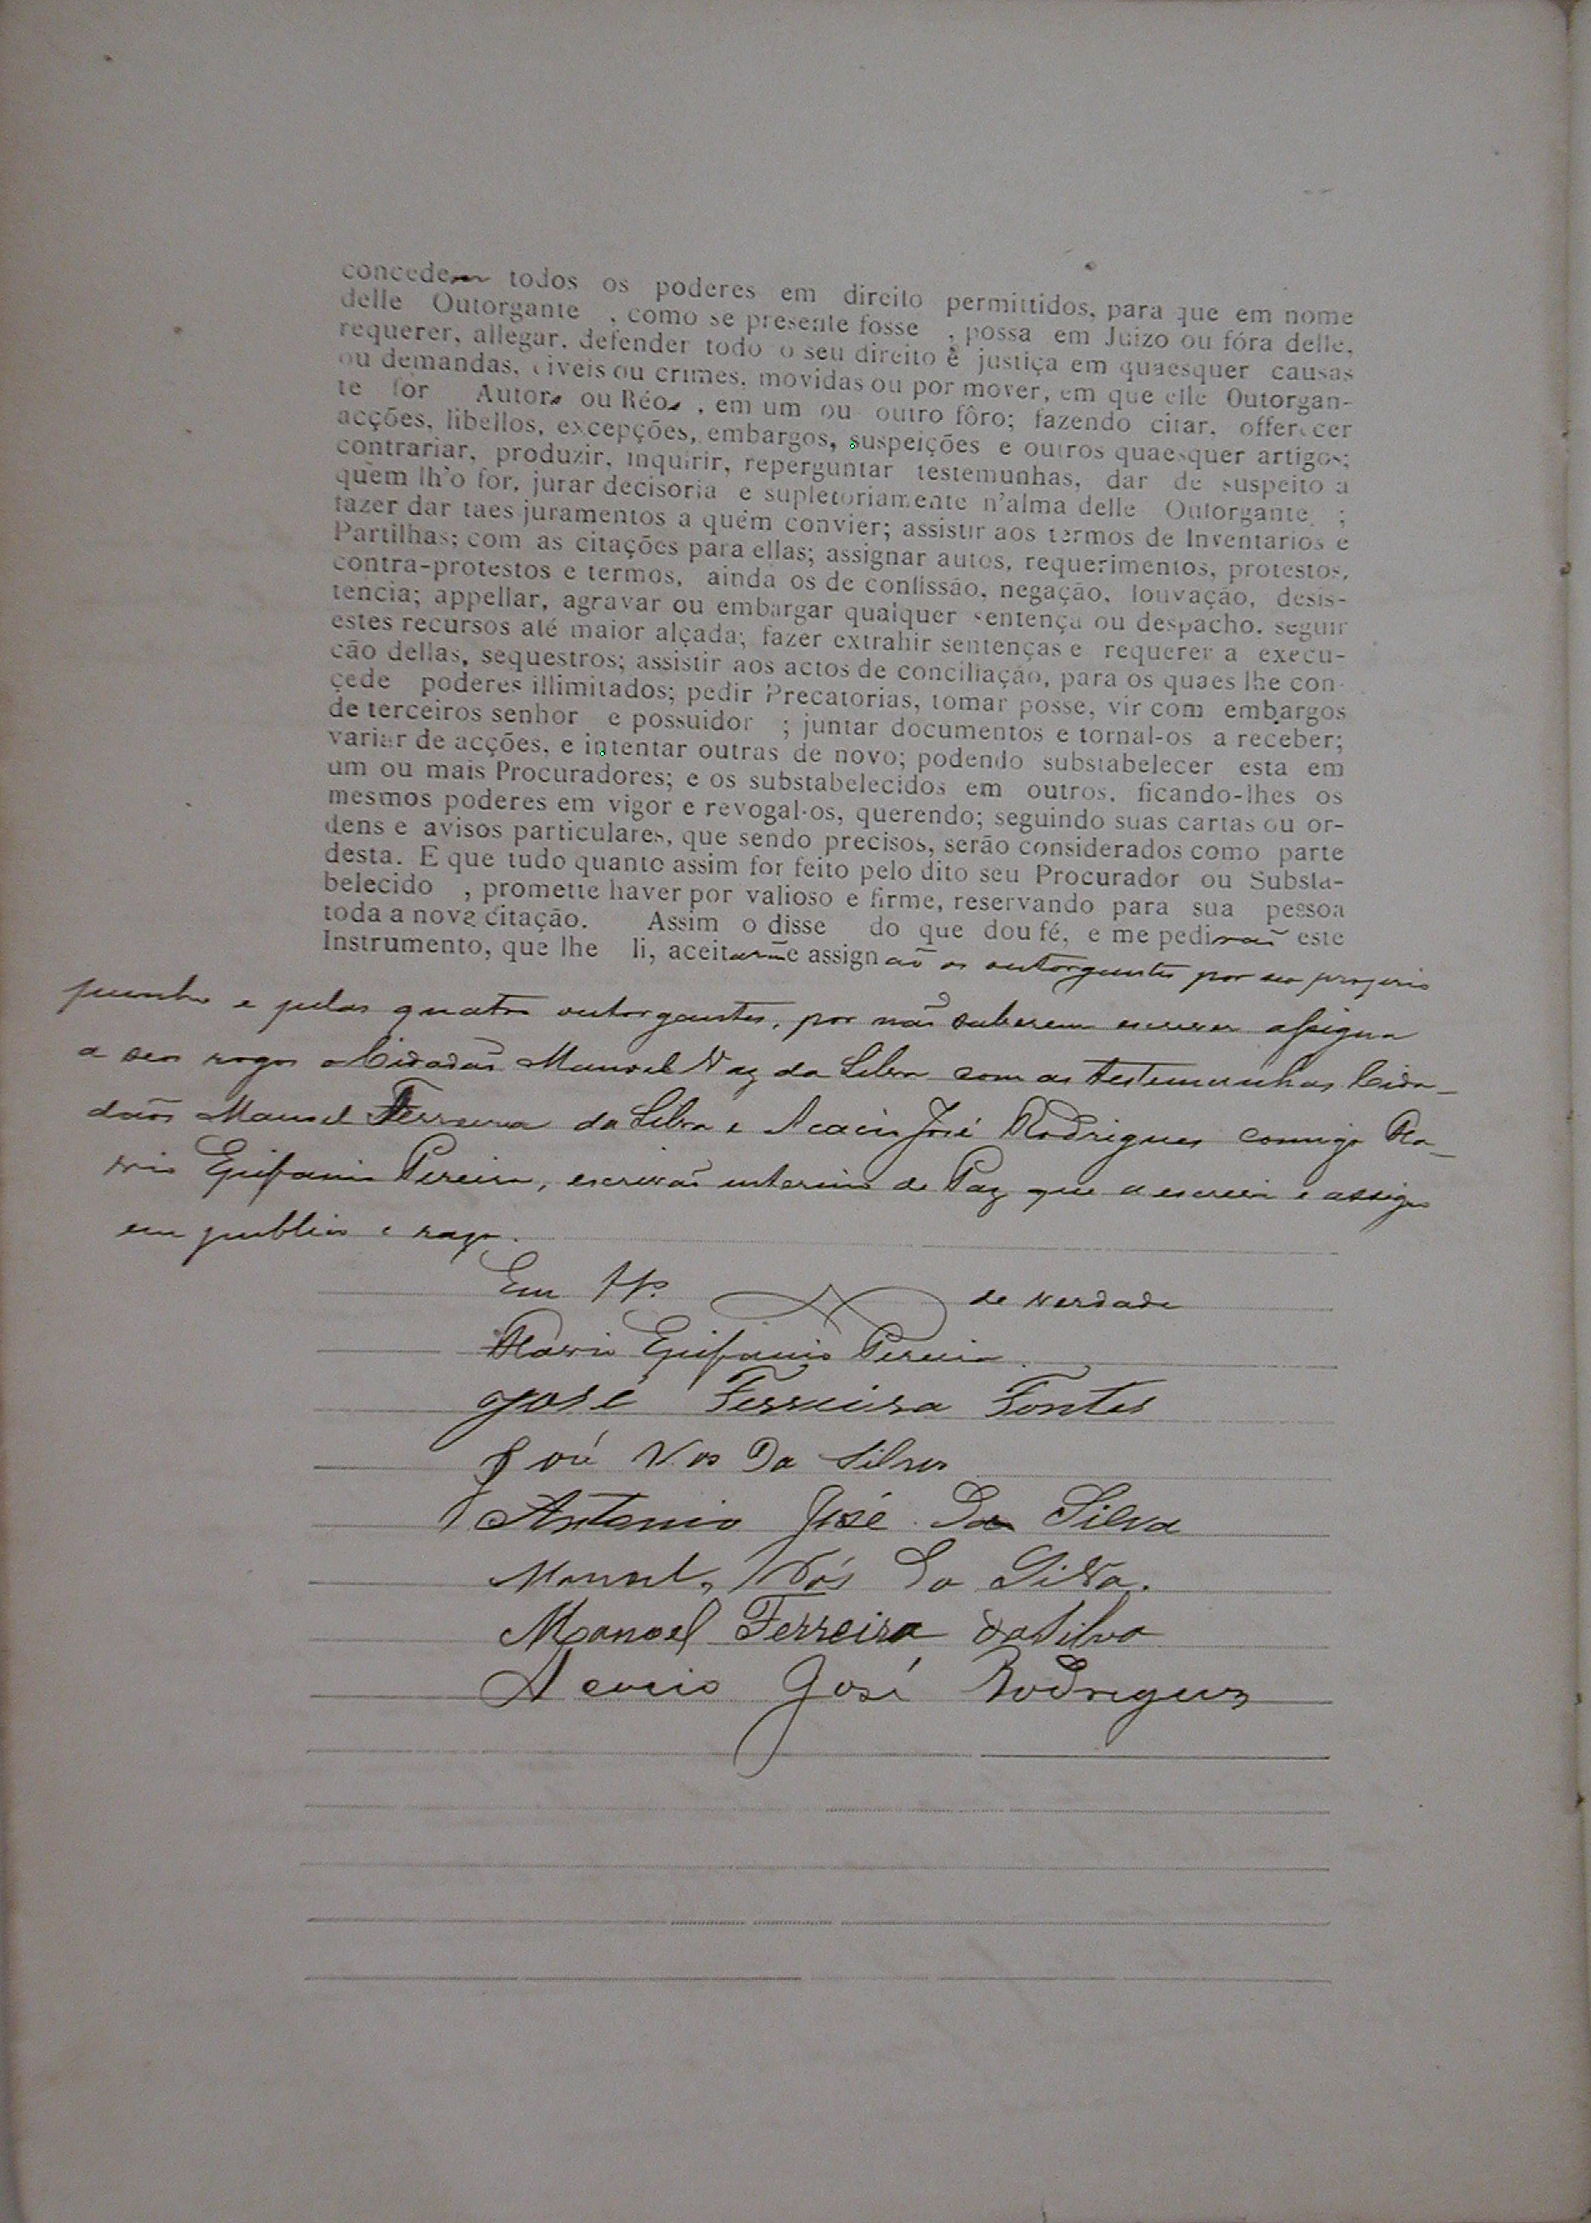 concederam todos os poderes em direito permittidos, para que em nome
delle Outorgante , como se presente fosse , possa em Juizo ou fóra delle,
requerer, allegar, defender todo o seu direito e justiça em quaesquer causas
ou demandas, civeis ou crimes, movidas ou por mover, em que elle Outorgan-
te for Autor ou Réo , em um ou outro fôro; fazendo citar, offerecer
acções, libellos, excepções, embargos, suspeições e outros quaesquer artigos;
contrariar, produzir, inquirir, reperguntar testemunhas, dar de suspeito a
quem lh'o for, jurar decisoria e supletoriamente n'alma delle Outorgante ;
fazer dar taes juramentos a quem convier; assistir aos termos de Inventarios e
Partilhas; com as citações para ellas; assignar autos, requerimentos, protestos,
contra-protestos e termos, ainda os de confissão, negação, louvação, desis-
tencia; appellar, agravar ou embargar qualquer sentença ou despacho, seguir
estes recursos até maior alçada; fazer extrahir sentenças e requerer a execu-
ção dellas, sequestros; assistir aos actos de conciliação, para os quaes lhe con-
çede poderes illimitados; pedir Precatorias, tomar posse, vir com embargos
de terceiros senhor e possuidor ; juntar documentos e tornal-os a receber;
variar de acções, e intentar outras de novo; podendo substabelecer esta em
um ou mais Procuradores; e os substabelecidos em outros, ficando-lhes os
mesmos poderes em vigor e revogal-os, querendo; seguindo suas cartas ou or-
dens e avisos particulares, que sendo precisos, serão considerados como parte
desta. E que tudo quanto assim for feito pelo dito seu Procurador ou Substa-
belecido , promette haver por valioso e firme, reservando para sua pessoa
toda a nova citação. Assim o disse do que dou fé, e me pediraõ este
Instrumento, que lhe li, aceitarm e assignaõ os outorgantes por seu proprio
punho e pelos quatro outorgantes, por naõ saberem escrever assigna
a seu rogo o Cidadaõ Manoel Vaz da Silva com as testemunhas Cida-
daõs Manoel Ferreira da Silva e Acacio José Rodrigues comigo
Epifanio Pereira, escrivaõ interino de Paz que a escrevi e assigno
em publico e raso.
Em de verdade
Epifanio Pereira
José Ferreira Fontes
José Vas Da Silva
Antonio José Da Silva
Manoel Vás Da Silva.
Manoel Ferreira da Silva
Acacio José Rodrigues